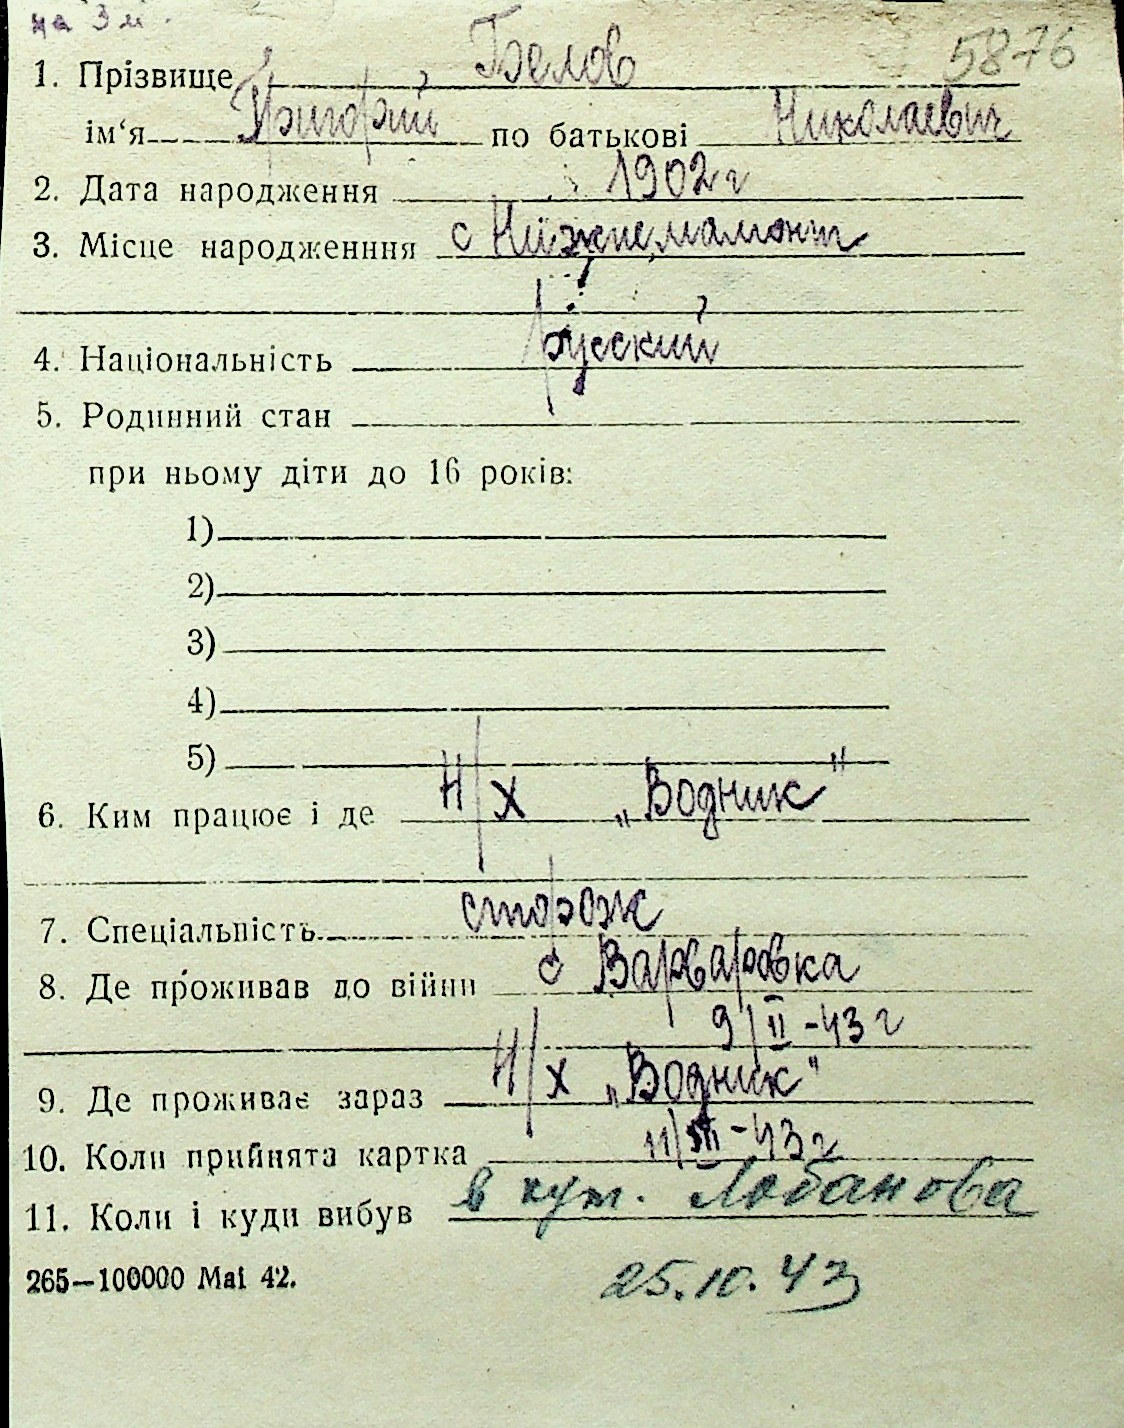 на 3 м.
5876
1. Прізвище Белов
ім‘я Григорий по батькові Николаевич
2. Дата народження 1902 г
3. Місце народженння с Нижнемамонт
4. Національність русский
5. Родинний стан
при ньому діти до 16 років:
1)
2)
3)
4)
5)
6. Ким працює і де Н/х „Водник"
7. Спеціальність сторож
8. Де проживав до війни с Варваровка
9/II-43 г
9. Де проживає зараз Н/х „Водник"
10. Коли прийнята картка 11/III-43 г
11. Коли і куди вибув в хут. Лобанова
265—100000 Mai 42. 25.10.43